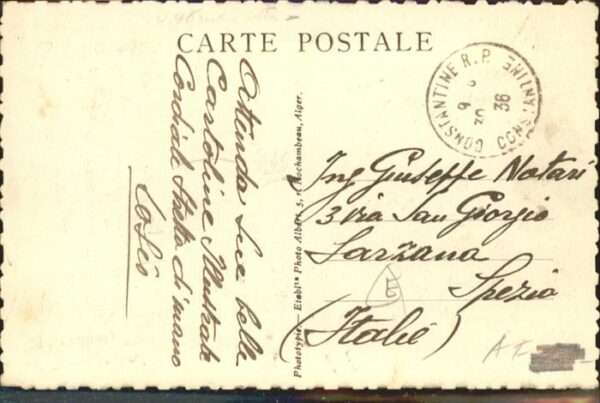 CARTE POSTALE
CONSTANTINE R.P.
CONSTANTINE
9
30
36
Attendo Sue belle
Cartoline Illustrate
Cordiale Stretta di mano
Phototypie — Etabl.ts Photo Albert, 5, r. Rochambeau, Alger.
Ing Giuseppe Notari
3 via San Giorgio
Sarzana
Spezia
(Italie)